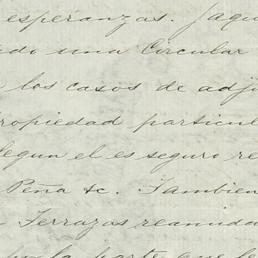 esperanzas. Jaqu
do una Circular
los casos de adju
ropiedad particul
legun el es seguro re
Peña &c. Tambien
Terrazas reanuda
por la parte que le